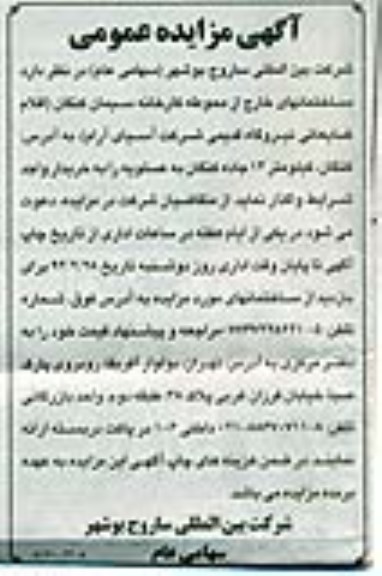 آگهی مزایده عمومی
شرکت بین المللی ساروج بوشهر (سهامی عام) در نظر دارد
ساختمانهای خارج از محوطه کارخانه سیمان کنگان (اقلام
نیروگاه قدیمی شرکت آسیای آرام) به آدرس:
کنگان، کیلومتر ۱۲ جاده کنگان به عسلویه را به خریدار واجد
شرایط واگذار نماید. از متقاضیان شرکت در مزایده دعوت
می شود در یکی از ایام هفته در ساعات اداری از تاریخ چاپ
آگهی تا پایان وقت اداری روز دوشنبه تاریخ برای
بازدید از ساختمانهای مورد مزایده به آدرس فوق، شماره
تلفن مراجعه و پیشنهاد قیمت خود را به
دفتر مرکزی به آدرس: تهران، بولوار آفریقا، روبروی پارک
صبا، خیابان فرزان غربی پلاک طبقه دوم، واحد بازرگانی
تلفن داخلی در پاکت دربسته ارائه
نمایند. در ضمن هزینه های چاپ آگهی این مزایده به عهده
برنده مزایده می باشد.
شرکت بین المللی ساروج بوشهر
سهامی عام